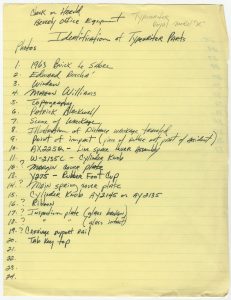 Cook or Harold
Beverly Office Equipment
Typewriter
Royal model "X"
Identification of Typewriter Parts
Photos
1. 1963 Buick Le Sabre
2. Edward Ruscha
3. Window
4. Mason Williams
5. Topography
6. Patrick Blackwell
7. Scene of Wreckage
8. Illustration of Distance wreckage traveled
9. Point of impact
10. AX225G - Line space lever assembly
11. W-2135C - Cylinder Knob
12. ? Margin cover plate
13. Y225 - Rubber Foot Cup
14. ? Main spring cover plate
15. Cylinder Knob AY2145 or AY2135
16. ? Ribbon
17. ? Inspection plate (glass broken)
18. ? " " (glass intact)
19. ? Carriage support rail
20. Tab Key top
21.
22.
23.
24.